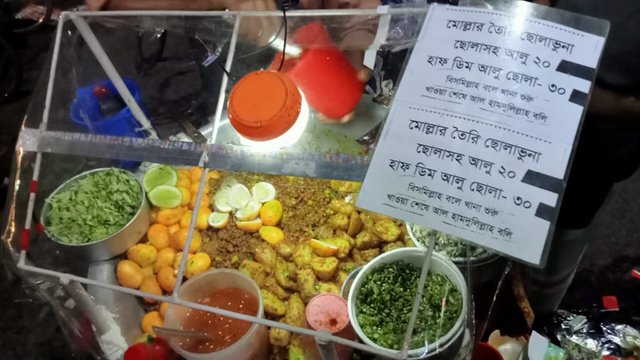 মোল্লার তৈরি ছোলাভুনা
ছোলাসহ আলু ২০
হাফ ডিম আলু ছোলা- ৩০
বিসমিল্লাহ বলে খানা শুরু
খাওয়া শেষে আল হামদুলিল্লাহ বলি
মোল্লার তৈরি ছোলাভুনা
ছোলাসহ আলু ২০
হাফ ডিম আলু ছোলা- ৩০
বিসমিল্লাহ বলে খানা শুরু
খাওয়া শেষে আল হামদুলিল্লাহ বলি